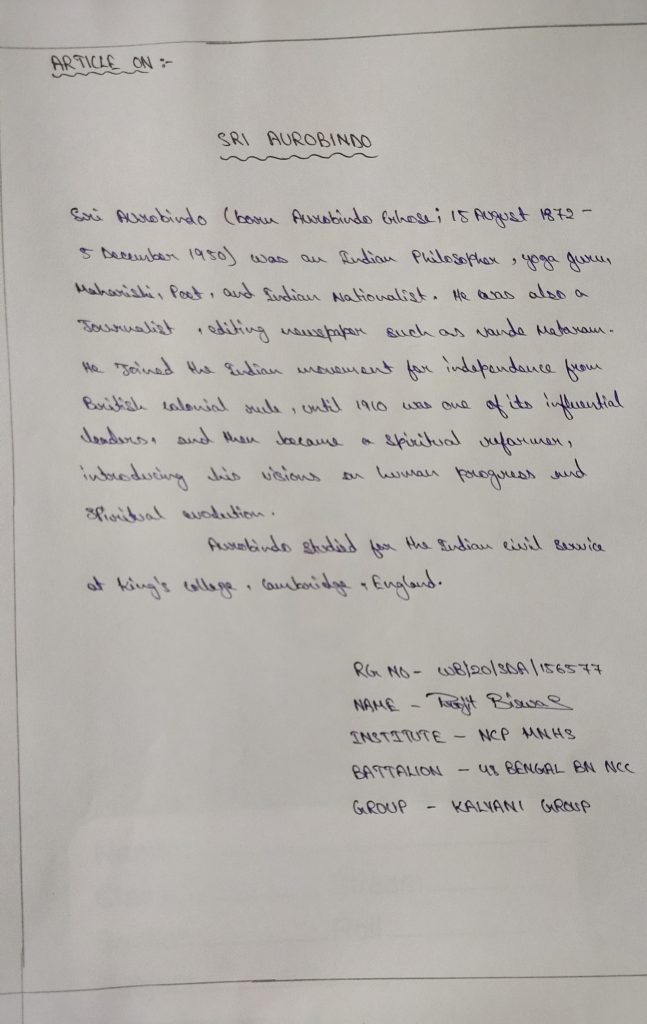 ARTICLE ON :-
SRI AUROBINDO
Sri Aurobindo (born Aurobindo Ghose; 15 August 1872 –
5 December 1950) was an Indian Philosopher, yoga guru,
Maharishi, Poet, and Indian Nationalist. He was also a
Journalist, editing newspaper such as Vande Mataram.
He Joined the Indian movement for independence from
British colonial rule, until 1910 was one of its influential
leaders, and then became a spiritual reformer,
introducing his visions on human progress and
Spiritual evolution.
Aurobindo Studied for the Indian civil Service
at King's college, Cambridge, England.
RG NO – WB/20/SDA/156577
NAME – Biswas
INSTITUTE – NCP MNHS
BATTALION – 48 BENGAL BN NCC
GROUP – KALYANI GROUP